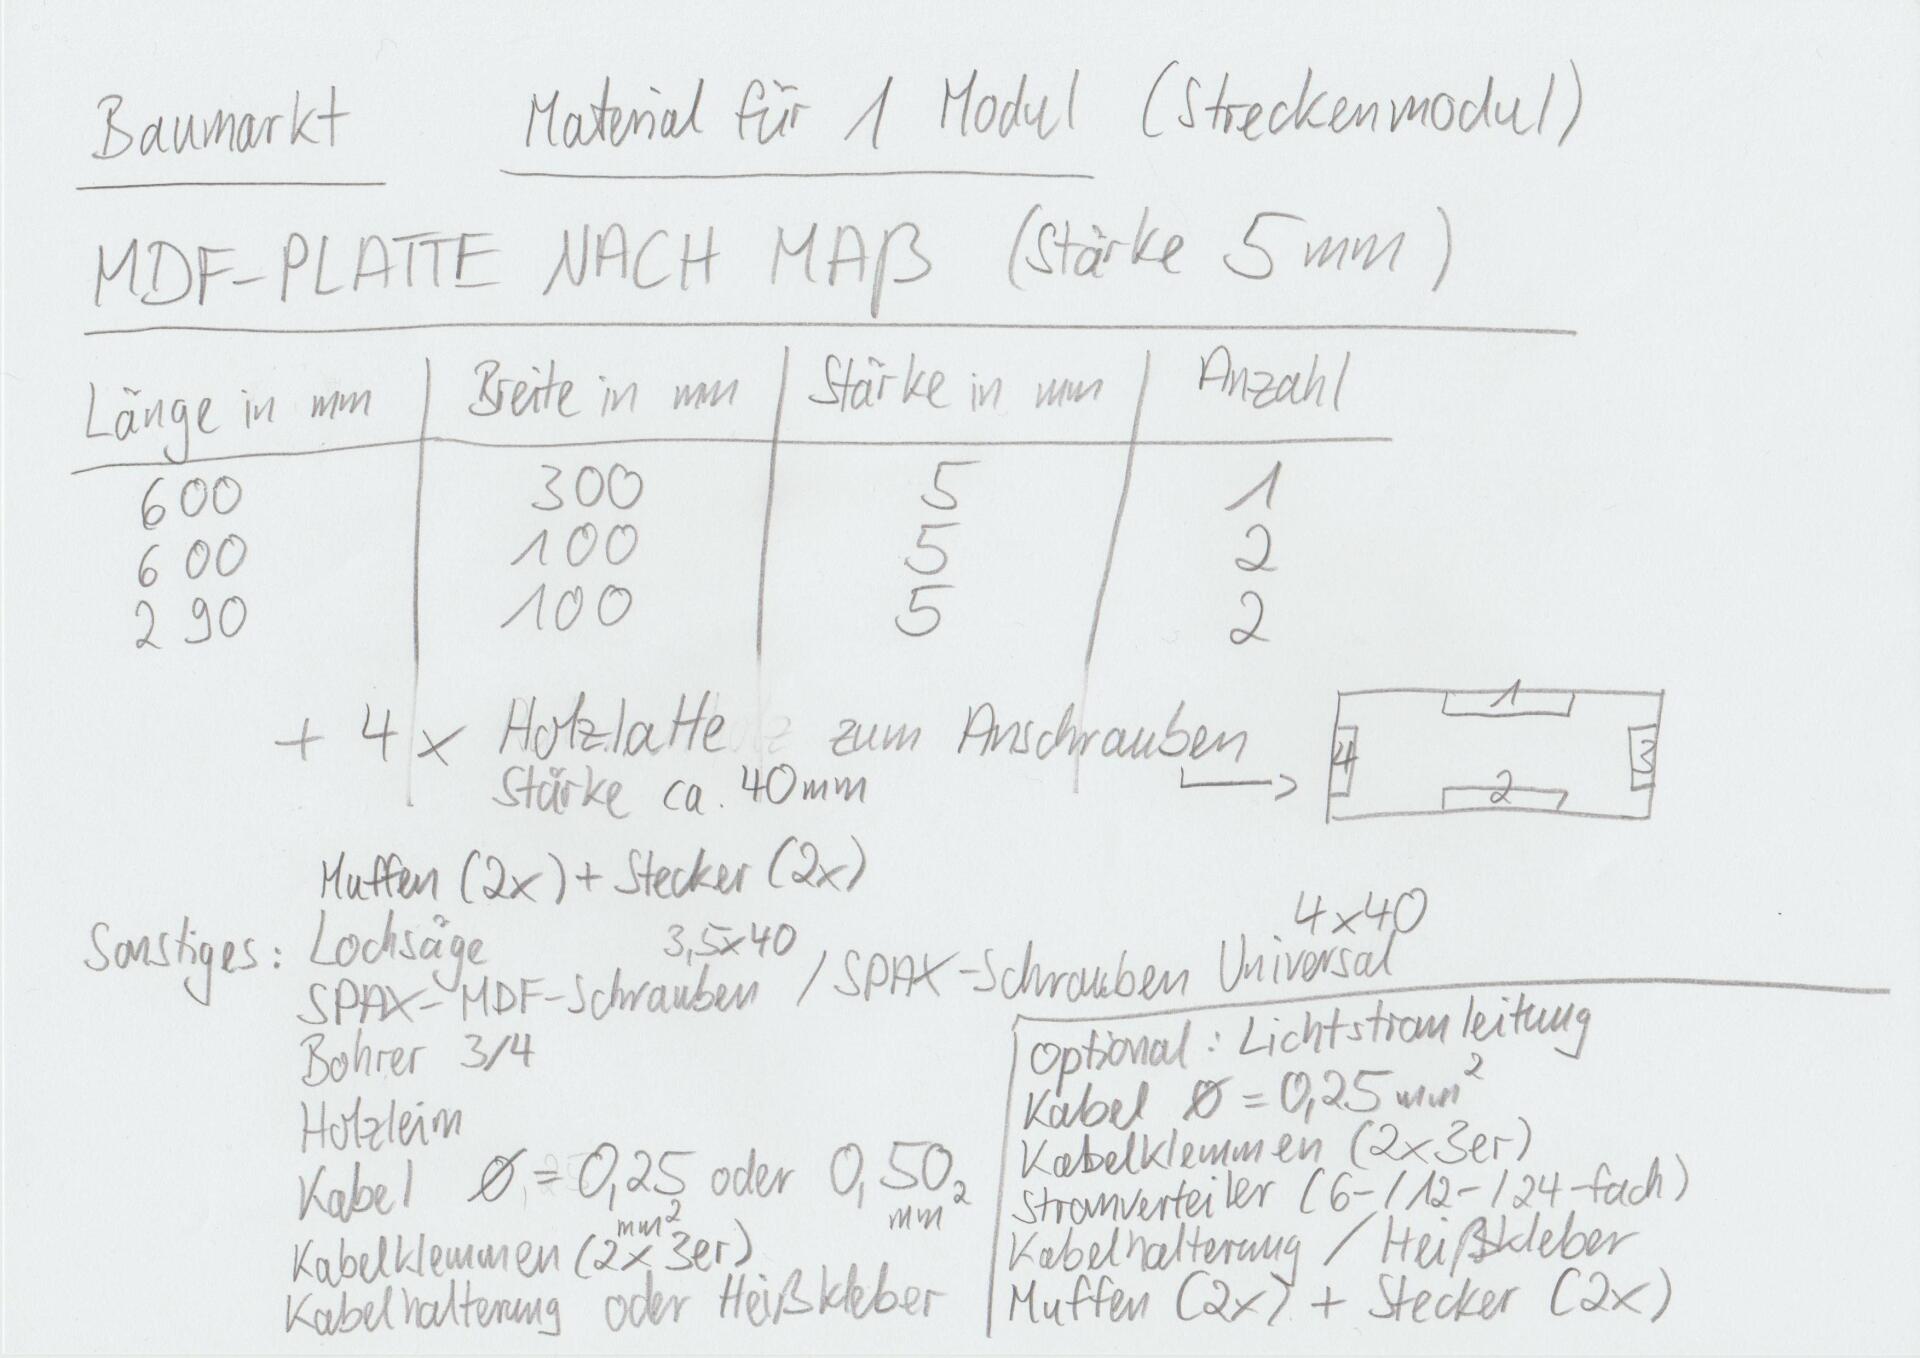 Baumarkt Material für 1 Modul (Streckenmodul)
MDF-PLATTE NACH MAß (Stärke 5 mm)
Länge in mm Breite in mm Stärke in mm Anzahl
600 300 5 1
600 100 5 2
290 100 5 2
+ 4 x Holzlatte zum Anschrauben
Stärke ca. 40mm
1
4 3
2
Muffen (2x) + Stecker (2x)
Sonstiges: Lochsäge
3,5x40 4x40
SPAX-MDF-Schrauben / SPAX-Schrauben Universal
Bohrer 3/4
Holzleim
Kabel Ø = 0,25 mm² oder 0,50 mm²
Kabelklemmen (2x 3er)
Kabelhalterung oder Heißkleber
Optional: Lichtstromleitung
Kabel Ø = 0,25 mm²
Kabelklemmen (2x 3er)
Stromverteiler (6-/12-/24-fach)
Kabelhalterung / Heißkleber
Muffen (2x) + Stecker (2x)